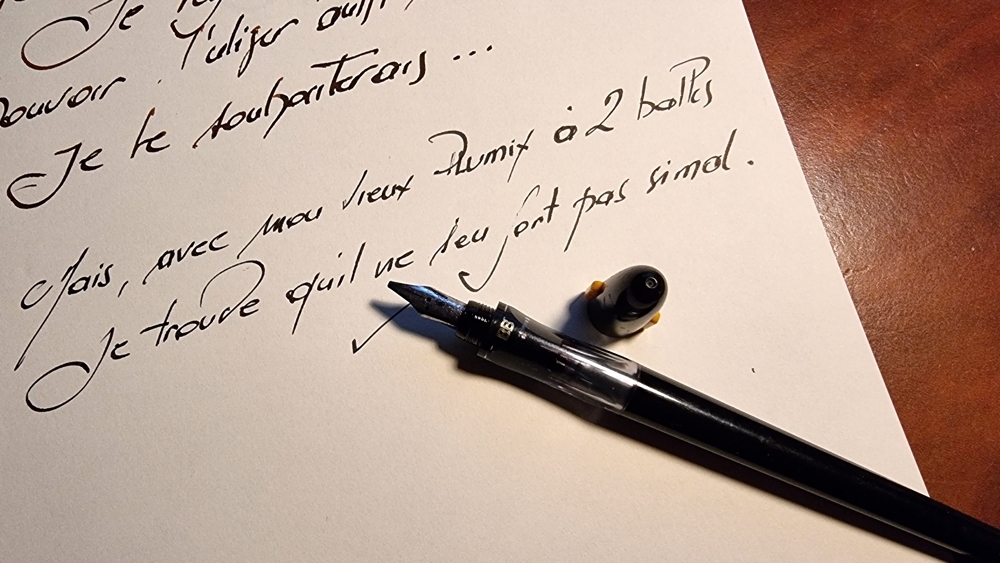 Je
Pouvoir
Je le souhaiterais ...
Mais, avec mon vieux Plumix à 2 balles
Je trouve qu'il ne s'en sort pas si mal.